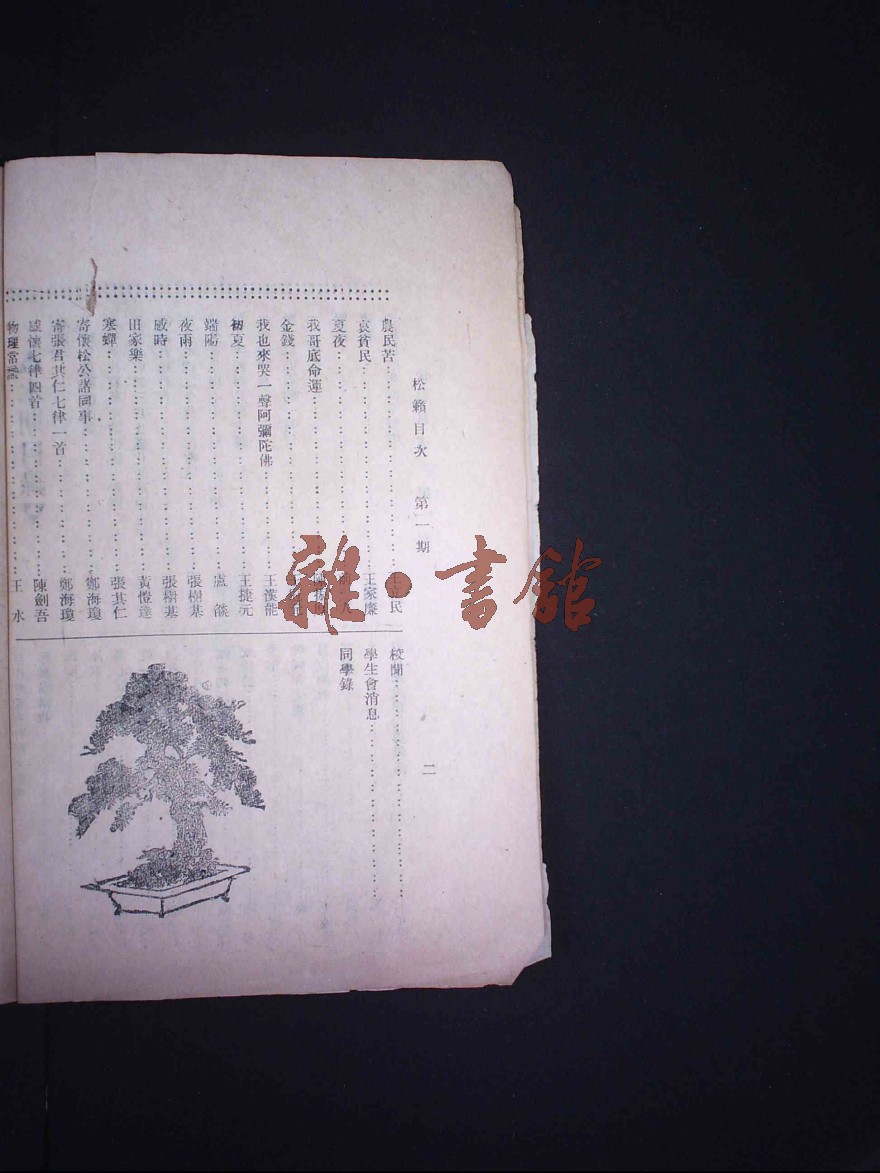 松籟目次　第一期
二
農民苦……王立民
哀貧民……王家廉
夏夜……
我哥底命運……
金錢……
我也來哭一聲阿彌陀佛……王漢能
初夏……王捷元
端陽……盧燄
夜雨……張樹基
感時……張樹基
田家樂……黃愷達
寒蟬……張其仁
寄懷松公諸同事……鄭海瓊
寄張君其仁七律一首……鄭海瓊
感懷七律四首……陳劍吾
物理常識……王水
校聞……
學生會消息……
同學錄
雜·書館